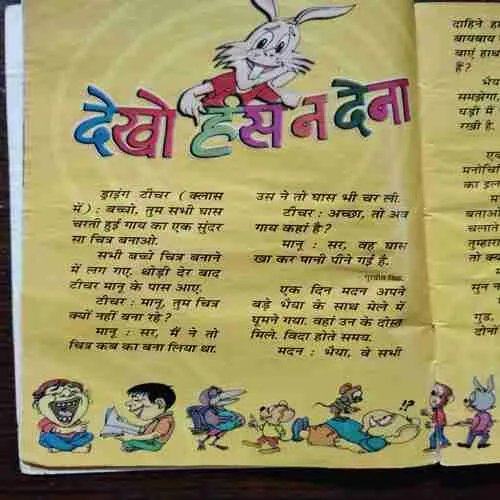 देखो हंस न देना
ड्राइंग टीचर (क्लास
में) : बच्चो, तुम सभी घास
चरती हुई गाय का एक सुंदर
सा चित्र बनाओ.
सभी बच्चे चित्र बनाने
में लग गए. थोड़ी देर बाद
टीचर मानू के पास आए.
टीचर : मानू, तुम चित्र
क्यों नहीं बना रहे?
मानू : सर, मैं ने तो
चित्र कब का बना लिया था.
उस ने तो घास भी चर ली.
टीचर : अच्छा, तो अब
गाय कहां है?
मानू : सर, वह घास
खा कर पानी पीने गई है.
एक दिन मदन अपने
बड़े भैया के साथ मेले में
घूमने गया. वहां उन के दोस्त
मिले. विदा होते समय.
मदन : भैया, ये सभी
!?
दाहिने
बायबाय
बाएं हाथ
हैं?
समझेगा,
घड़ी में
रखी है.
का
बताओ
चलाते
तो
सुन
गुड,
दोनों